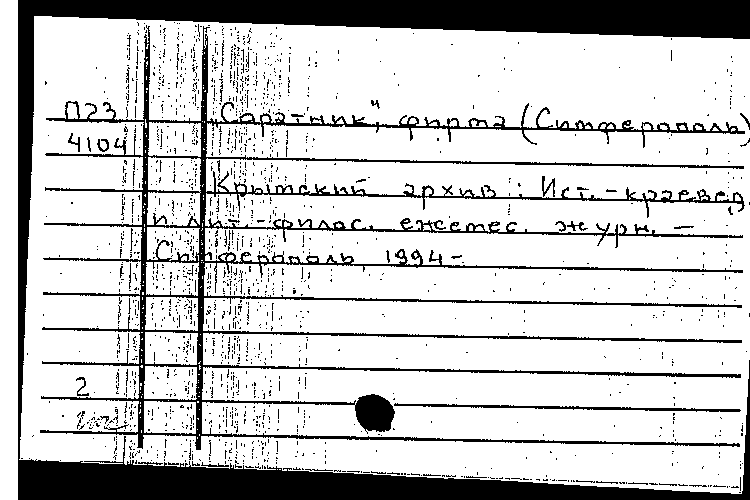 П23
4104
„Саратник", фирма (Симферополь)
Крымский архив : Ист.-краевед.
и лит.-филос. ежемес. журн. –
Симферополь, 1994–
2